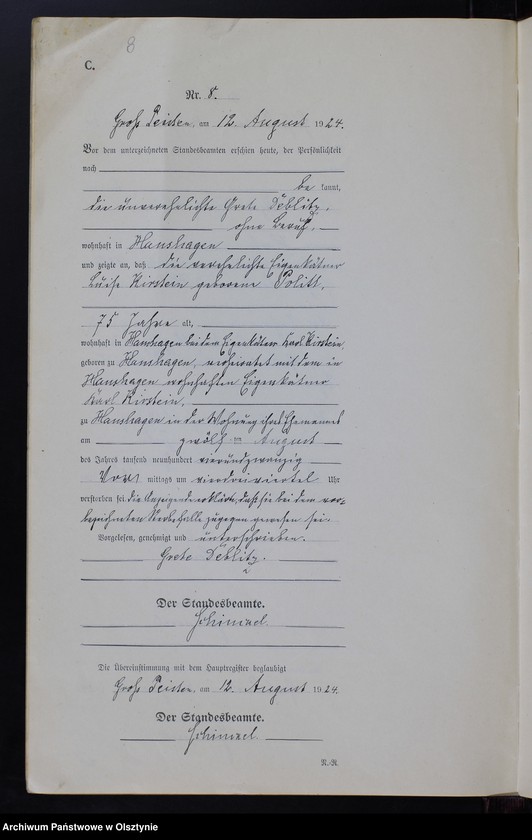 8
C.
Nr. 8.
Groß Peisten, am 12. August 1924.
Vor dem unterzeichneten Standesbeamten erschien heute, der Persönlichkeit
nach
be kannt,
die unverehelichte Grete Deblitz,
ohne Beruf,
wohnhaft in Hanshagen
und zeigte an, daß die verehelichte Eigenkätner
Luise Kirstein geborene Politt,
75 Jahre alt,
wohnhaft in Hanshagen bei dem Eigenkätner Karl Kirstein,
geboren zu Hanshagen, verheiratet mit dem in
Hanshagen wohnhaften Eigenkätner
Karl Kirstein,
zu Hanshagen in der Wohnung ihres Ehemannes
am zwölften August
des Jahres tausend neunhundert vierundzwanzig
Vor mittags um vierdreiviertel Uhr
verstorben sei. Die Anzeigende erklärte, daß sie bei dem vor-
bezeichneten Sterbefalle zugegen gewesen sei.
Vorgelesen, genehmigt und unterschrieben.
Grete Deblitz.
Der Standesbeamte.
Schimmel
Die Übereinstimmung mit dem Hauptregister beglaubigt
Groß Peisten, am 12. August 1924.
Der Standesbeamte.
Schimmel
R./R.
Archiwum Państwowe w Olsztynie